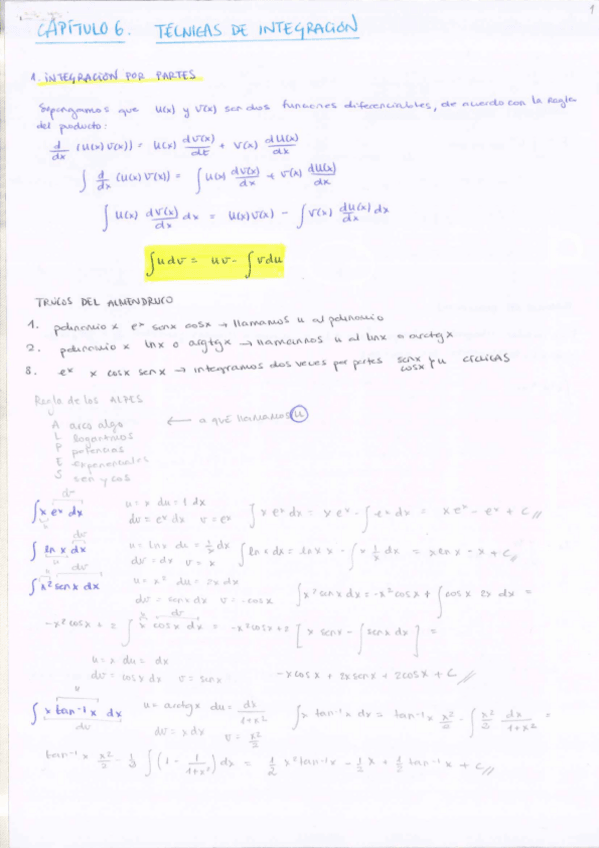 1
CAPÍTULO 6. TÉCNICAS DE INTEGRACIÓN
1. INTEGRACIÓN POR PARTES
Supongamos que u(x) y v(x) son dos funciones diferenciables, de acuerdo con la Regla
del producto:
d/dx (u(x)v(x)) = u(x) dv(x)/dt + v(x) du(x)/dx
∫ d/dx (u(x)v(x)) = ∫ u(x) dv(x)/dx + v(x) du(x)/dx
∫ u(x) dv(x)/dx dx = u(x)v(x) - ∫ v(x) du(x)/dx dx
∫ u dv = uv - ∫ v du
TRUCOS DEL ALMENDRUCO
1. polinomio x eˣ senx cosx → llamamos u al polinomio
2. polinomio x lnx o argtgx → llamamos u al lnx o arctgx
3. eˣ x cosx senx → integramos dos veces por partes senx/cosx → u CÍCLICAS
Regla de los ALPES
U
A arco algo ← a qué llamamos u
L logaritmos
P potencias
E exponenciales
S sen y cos
∫ x eˣ dx u = x du = 1 dx ∫ x eˣ dx = x eˣ - ∫ eˣ dx = x eˣ - eˣ + C //
dv = eˣ dx v = eˣ
∫ ln x dx u = lnx du = 1/x dx ∫ ln x dx = ln x x - ∫ x 1/x dx = x ln x - x + C //
dv = dx v = x
∫ x² senx dx u = x² du = 2x dx
dv = senx dx v = -cosx ∫ x² senx dx = -x² cosx + ∫ cosx 2x dx =
-x² cosx + 2 ∫ x cosx dx = -x² cosx + 2 [x senx - ∫ senx dx] =
u = x du = dx
dv = cosx dx v = senx -x cosx + 2x senx + 2 cosx + C //
∫ x tan⁻¹ x dx u = arctgx du = dx/1+x² ∫ x tan⁻¹ x dx = tan⁻¹ x x²/2 - ∫ x²/2 dx/1+x² =
dv = x dx v = x²/2
tan⁻¹ x x²/2 - 1/2 ∫ (1 - 1/1+x²) dx = 1/2 x² tan⁻¹ x - 1/2 x + 1/2 tan⁻¹ x + C //